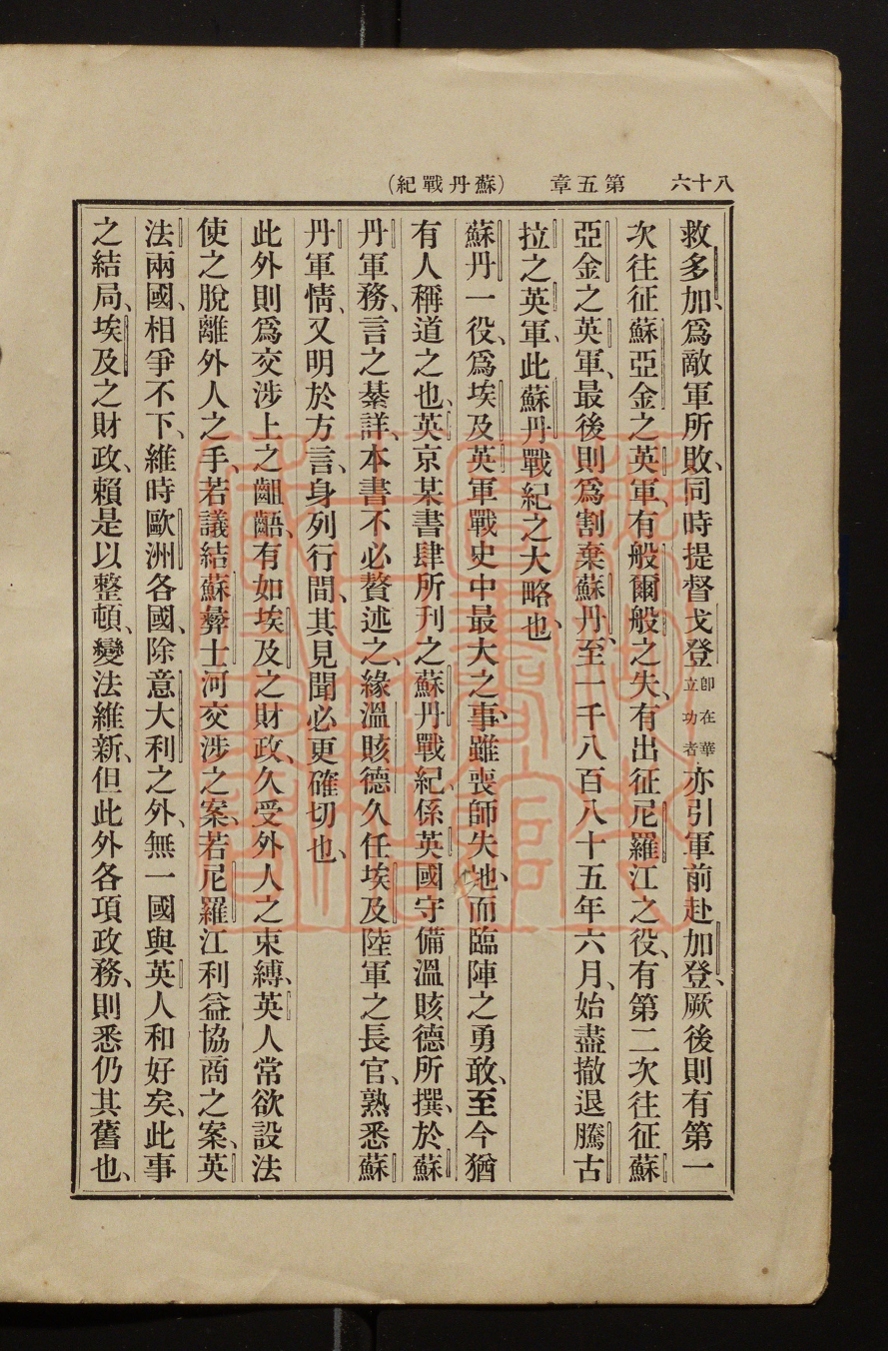 八十六 第五章 (蘇丹戰紀)
救多加、爲敵軍所敗、同時提督戈登卽在華立功者亦引軍前赴加登、厥後則有第一
次往征蘇亞金之英軍、有般爾般之失、有出征尼羅江之役、有第二次往征蘇
亞金之英軍、最後則爲割棄蘇丹、至一千八百八十五年六月、始盡撤退騰古
拉之英軍、此蘇丹戰紀之大略也、
蘇丹一役、爲埃及英軍戰史中最大之事、雖喪師失地、而臨陣之勇敢、至今猶
有人稱道之也、英京某書肆所刊之蘇丹戰紀、係英國守備溫賅德所撰、於蘇
丹軍務、言之綦詳、本書不必贅述之、緣溫賅德久任埃及陸軍之長官、熟悉蘇
丹軍情、又明於方言、身列行間、其見聞必更確切也、
此外則爲交涉上之齟齬、有如埃及之財政、久受外人之束縛、英人常欲設法
使之脫離外人之手、若議結蘇彝士河交涉之案、若尼羅江利益協商之案、英
法兩國、相爭不下、維時歐洲各國、除意大利之外、無一國與英人和好矣、此事
之結局、埃及之財政、賴是以整頓、變法維新、但此外各項政務、則悉仍其舊也、